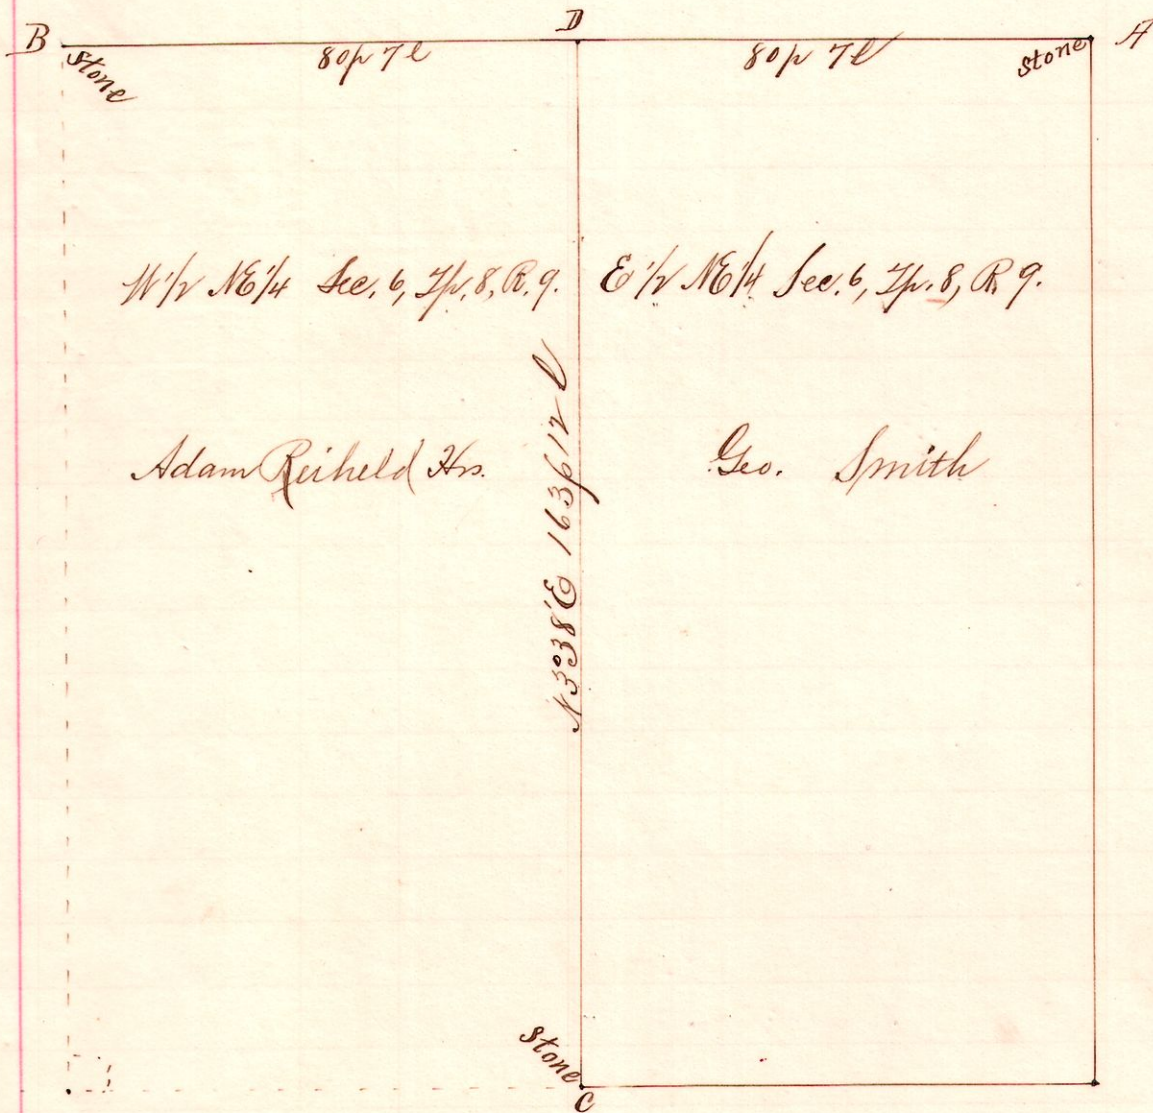 B D A
stone 80p 7l 80p 7l stone
W 1/2 NE 1/4 Sec. 6, Tp. 8, R. 9. E 1/2 NE 1/4 Sec. 6, Tp. 8, R 9.
Adam Reiheld Hrs. Geo. Smith
N3°38'E 163p12 l
stone
C